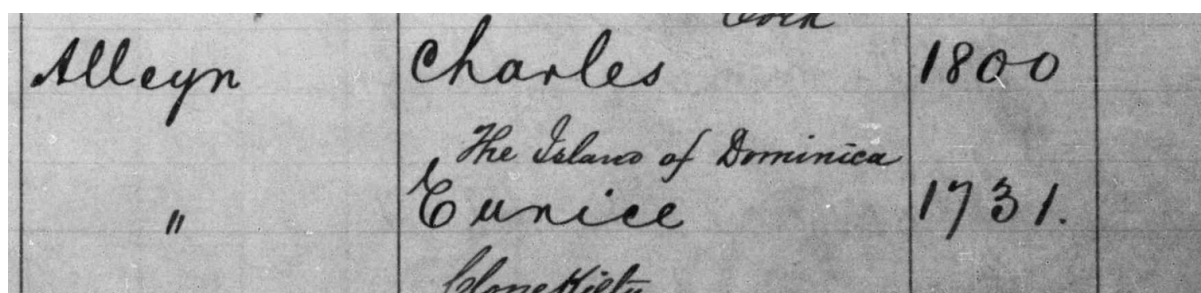 Cork
Alleyn Charles 1800
The Island of Dominica
" Eunice 1731.
Clonekilty